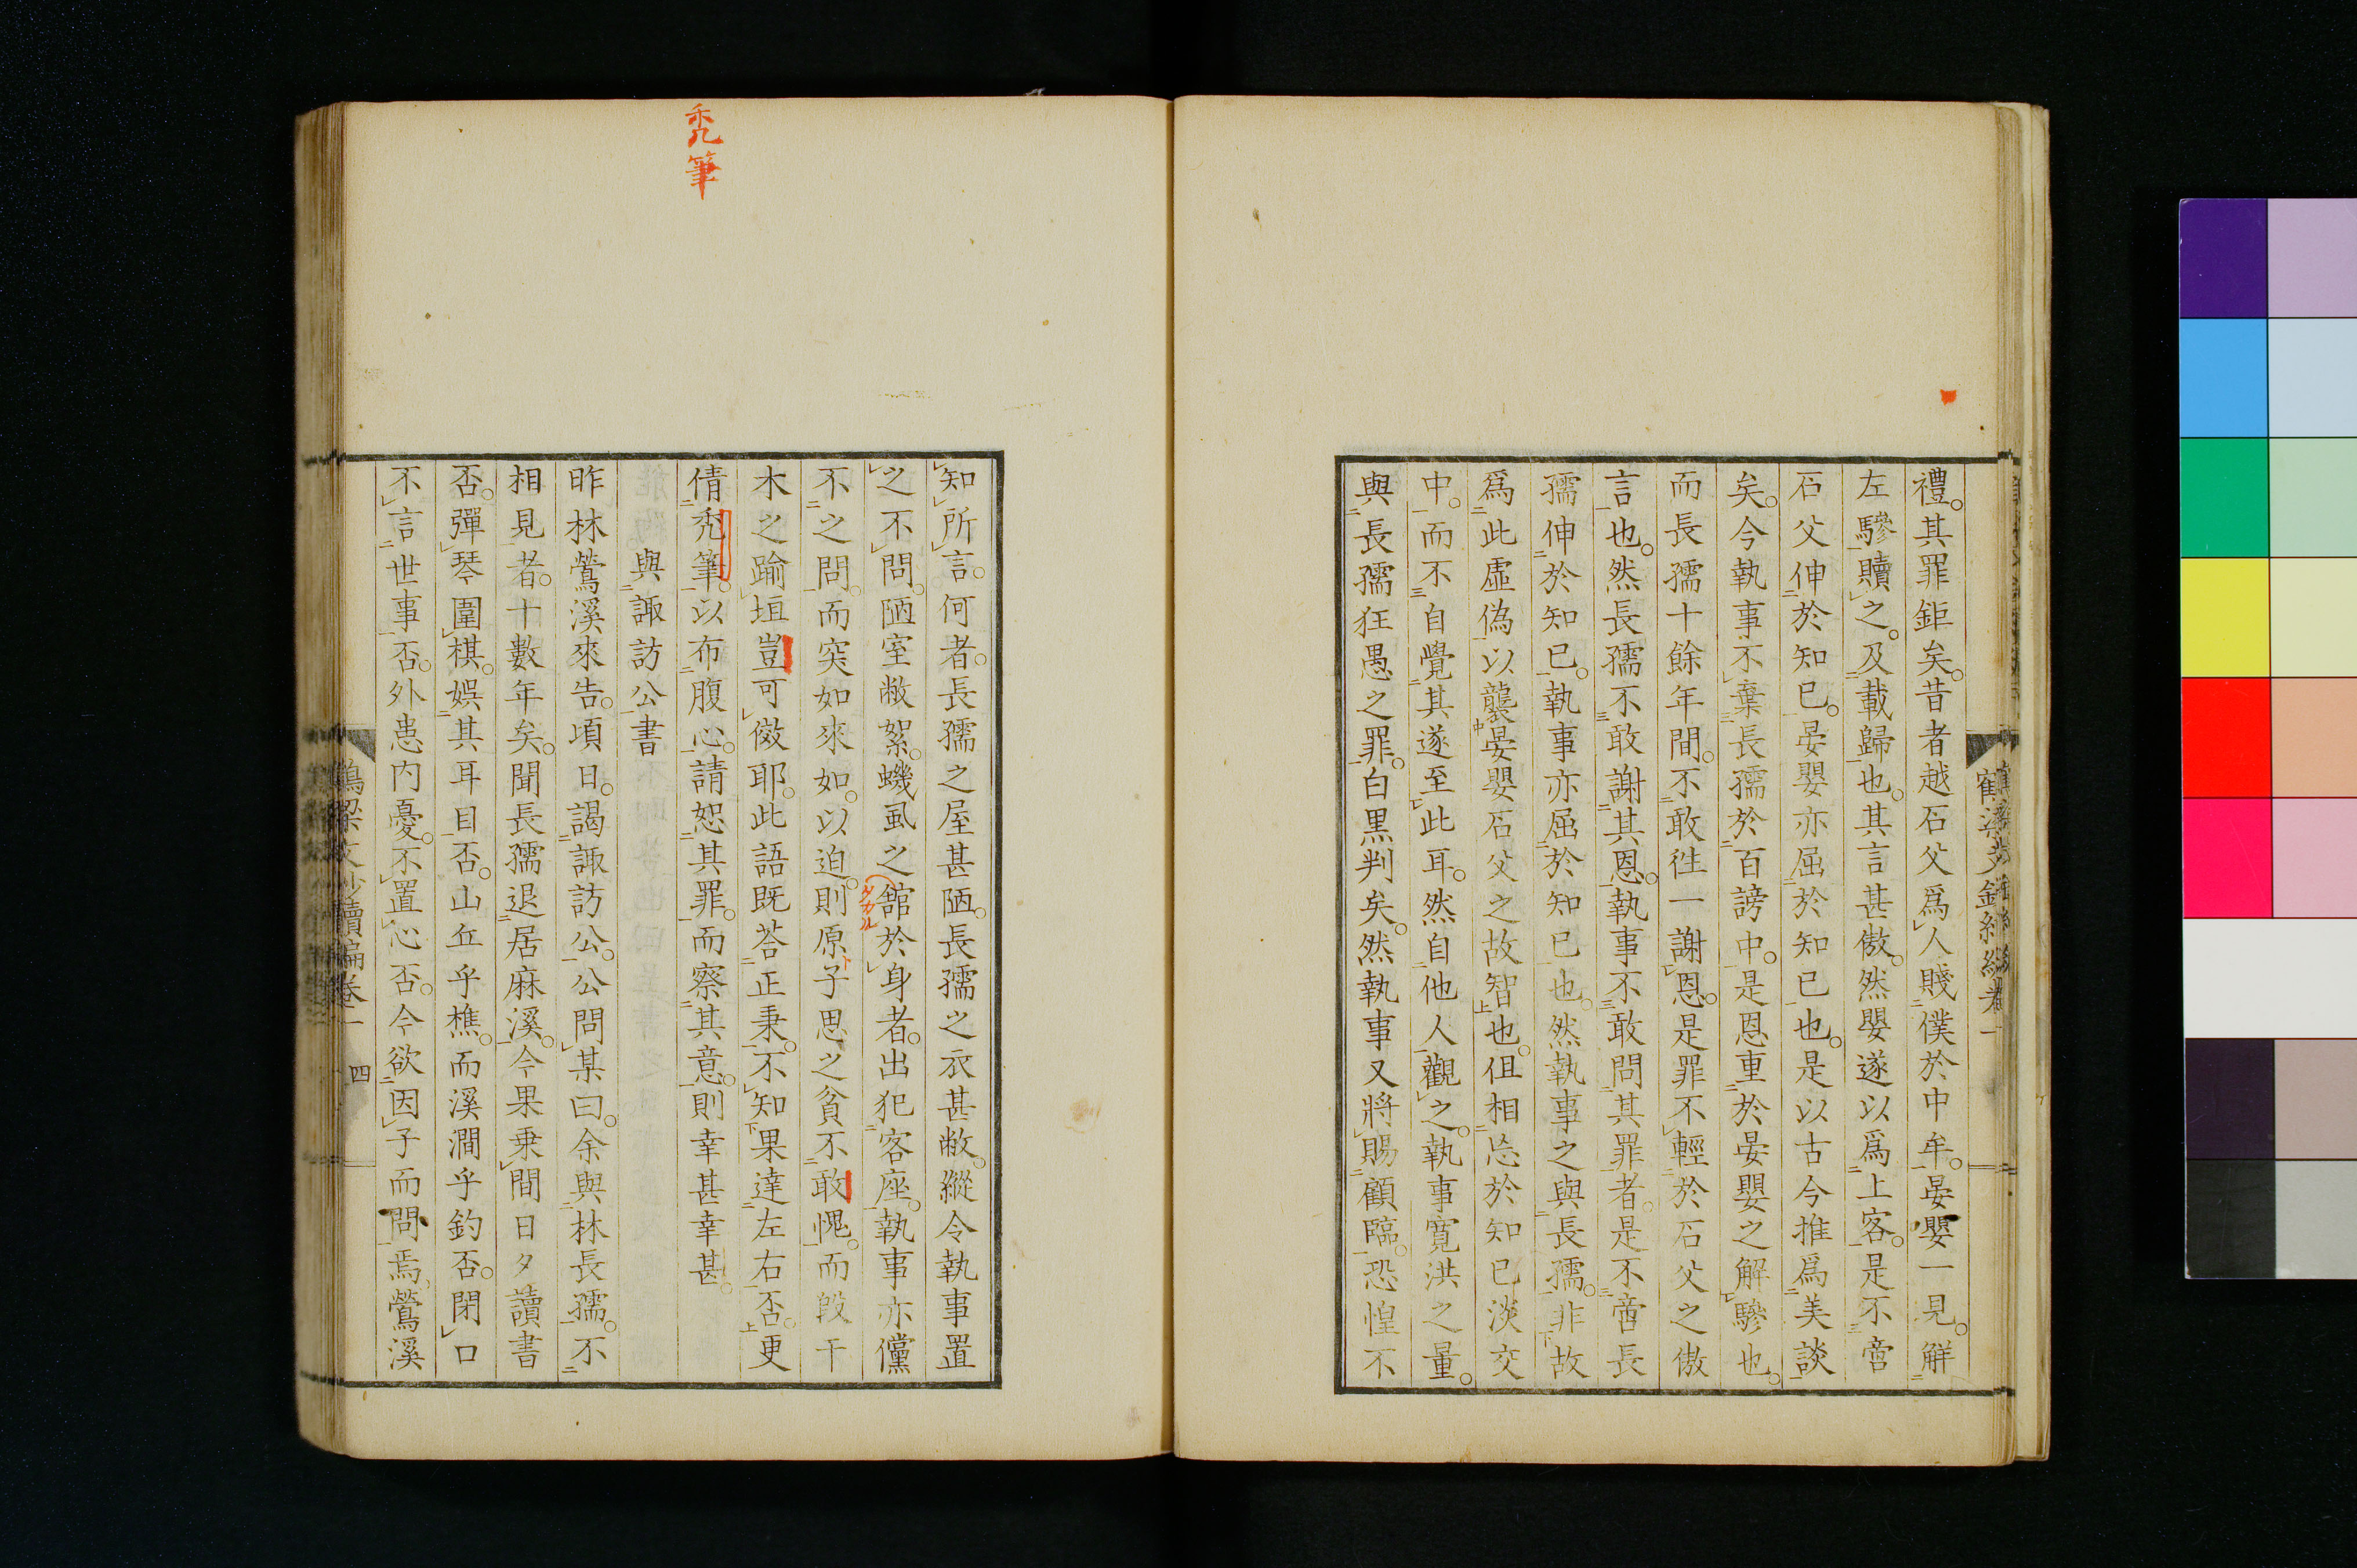 禮。其罪鉅矣。昔者越石父爲人賤僕於中牟。晏嬰一見。解
左驂贖之。及載歸也。其言甚傲。然嬰遂以爲上客。是不啻
石父伸於知己。晏嬰亦屈於知已也。是以古今推爲美談
矣。今執事不棄長孺於百謗中。是恩重於晏嬰之解驂也。
而長孺十餘年間。不敢徃一謝恩。是罪不輕於石父之傲
言也。然長孺不敢謝其恩。執事不敢問其罪者。是不啻長
孺伸於知已。執事亦屈於知已也。然執事之與長孺。非故
爲此虛偽以襲晏嬰石父之故智也。但相忘於知已淡交
中。而不自覺其遂至此耳。然自他人觀之。執事寬洪之量。
與長孺狂愚之罪。白黒判矣。然執事又將賜顧臨。恐惶不
知所言。何者。長孺之屋甚陋。長孺之衣甚敝。縱令執事置
之不問。陋室敝絮。蟣虱之舘於身者。出犯客座。執事亦儻
タカル
不之問。而突如來如。以迫。則原子思之貧不敢愧。而段干
木之踰垣豈可傚耶。此語既荅正秉。不知果達左右否。更
倩禿筆。以布腹心。請恕其罪。而察其意。則幸甚幸甚。
禿筆
與諏訪公書
昨林鶯溪來告。頃日。謁諏訪公。公問某曰。余與林長孺。不
相見者。十數年矣。聞長孺退居麻溪。今果乗間日夕讀書
否。彈琴圍棋。娯其耳目否。山丘乎樵。而溪澗乎釣否。閉口
不言世事否。外患内憂。不置心否。今欲因子而問焉、鶯溪
鶴梁文鈔續編卷一
四